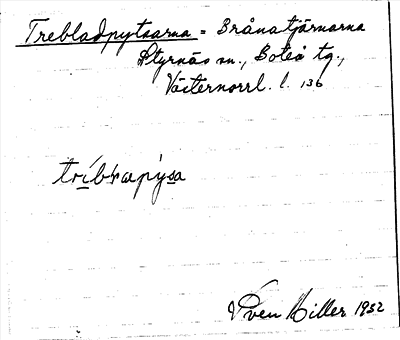 Trebladpytsarna = Brånatjärnarna
Styrnäs sn., Boteå tg.,
Västernorrl. l. 136
tríbʀapýsa
Sven Hiller 1932